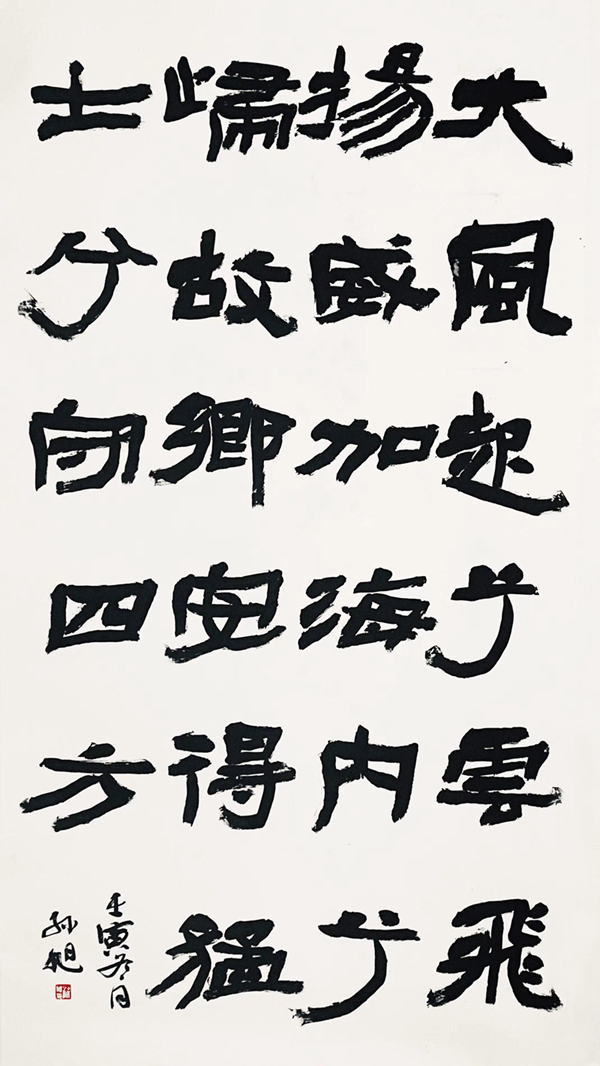 大風起兮雲飛
揚威加海内兮
歸故鄉安得猛
士兮守四方
壬寅冬月
孫旭